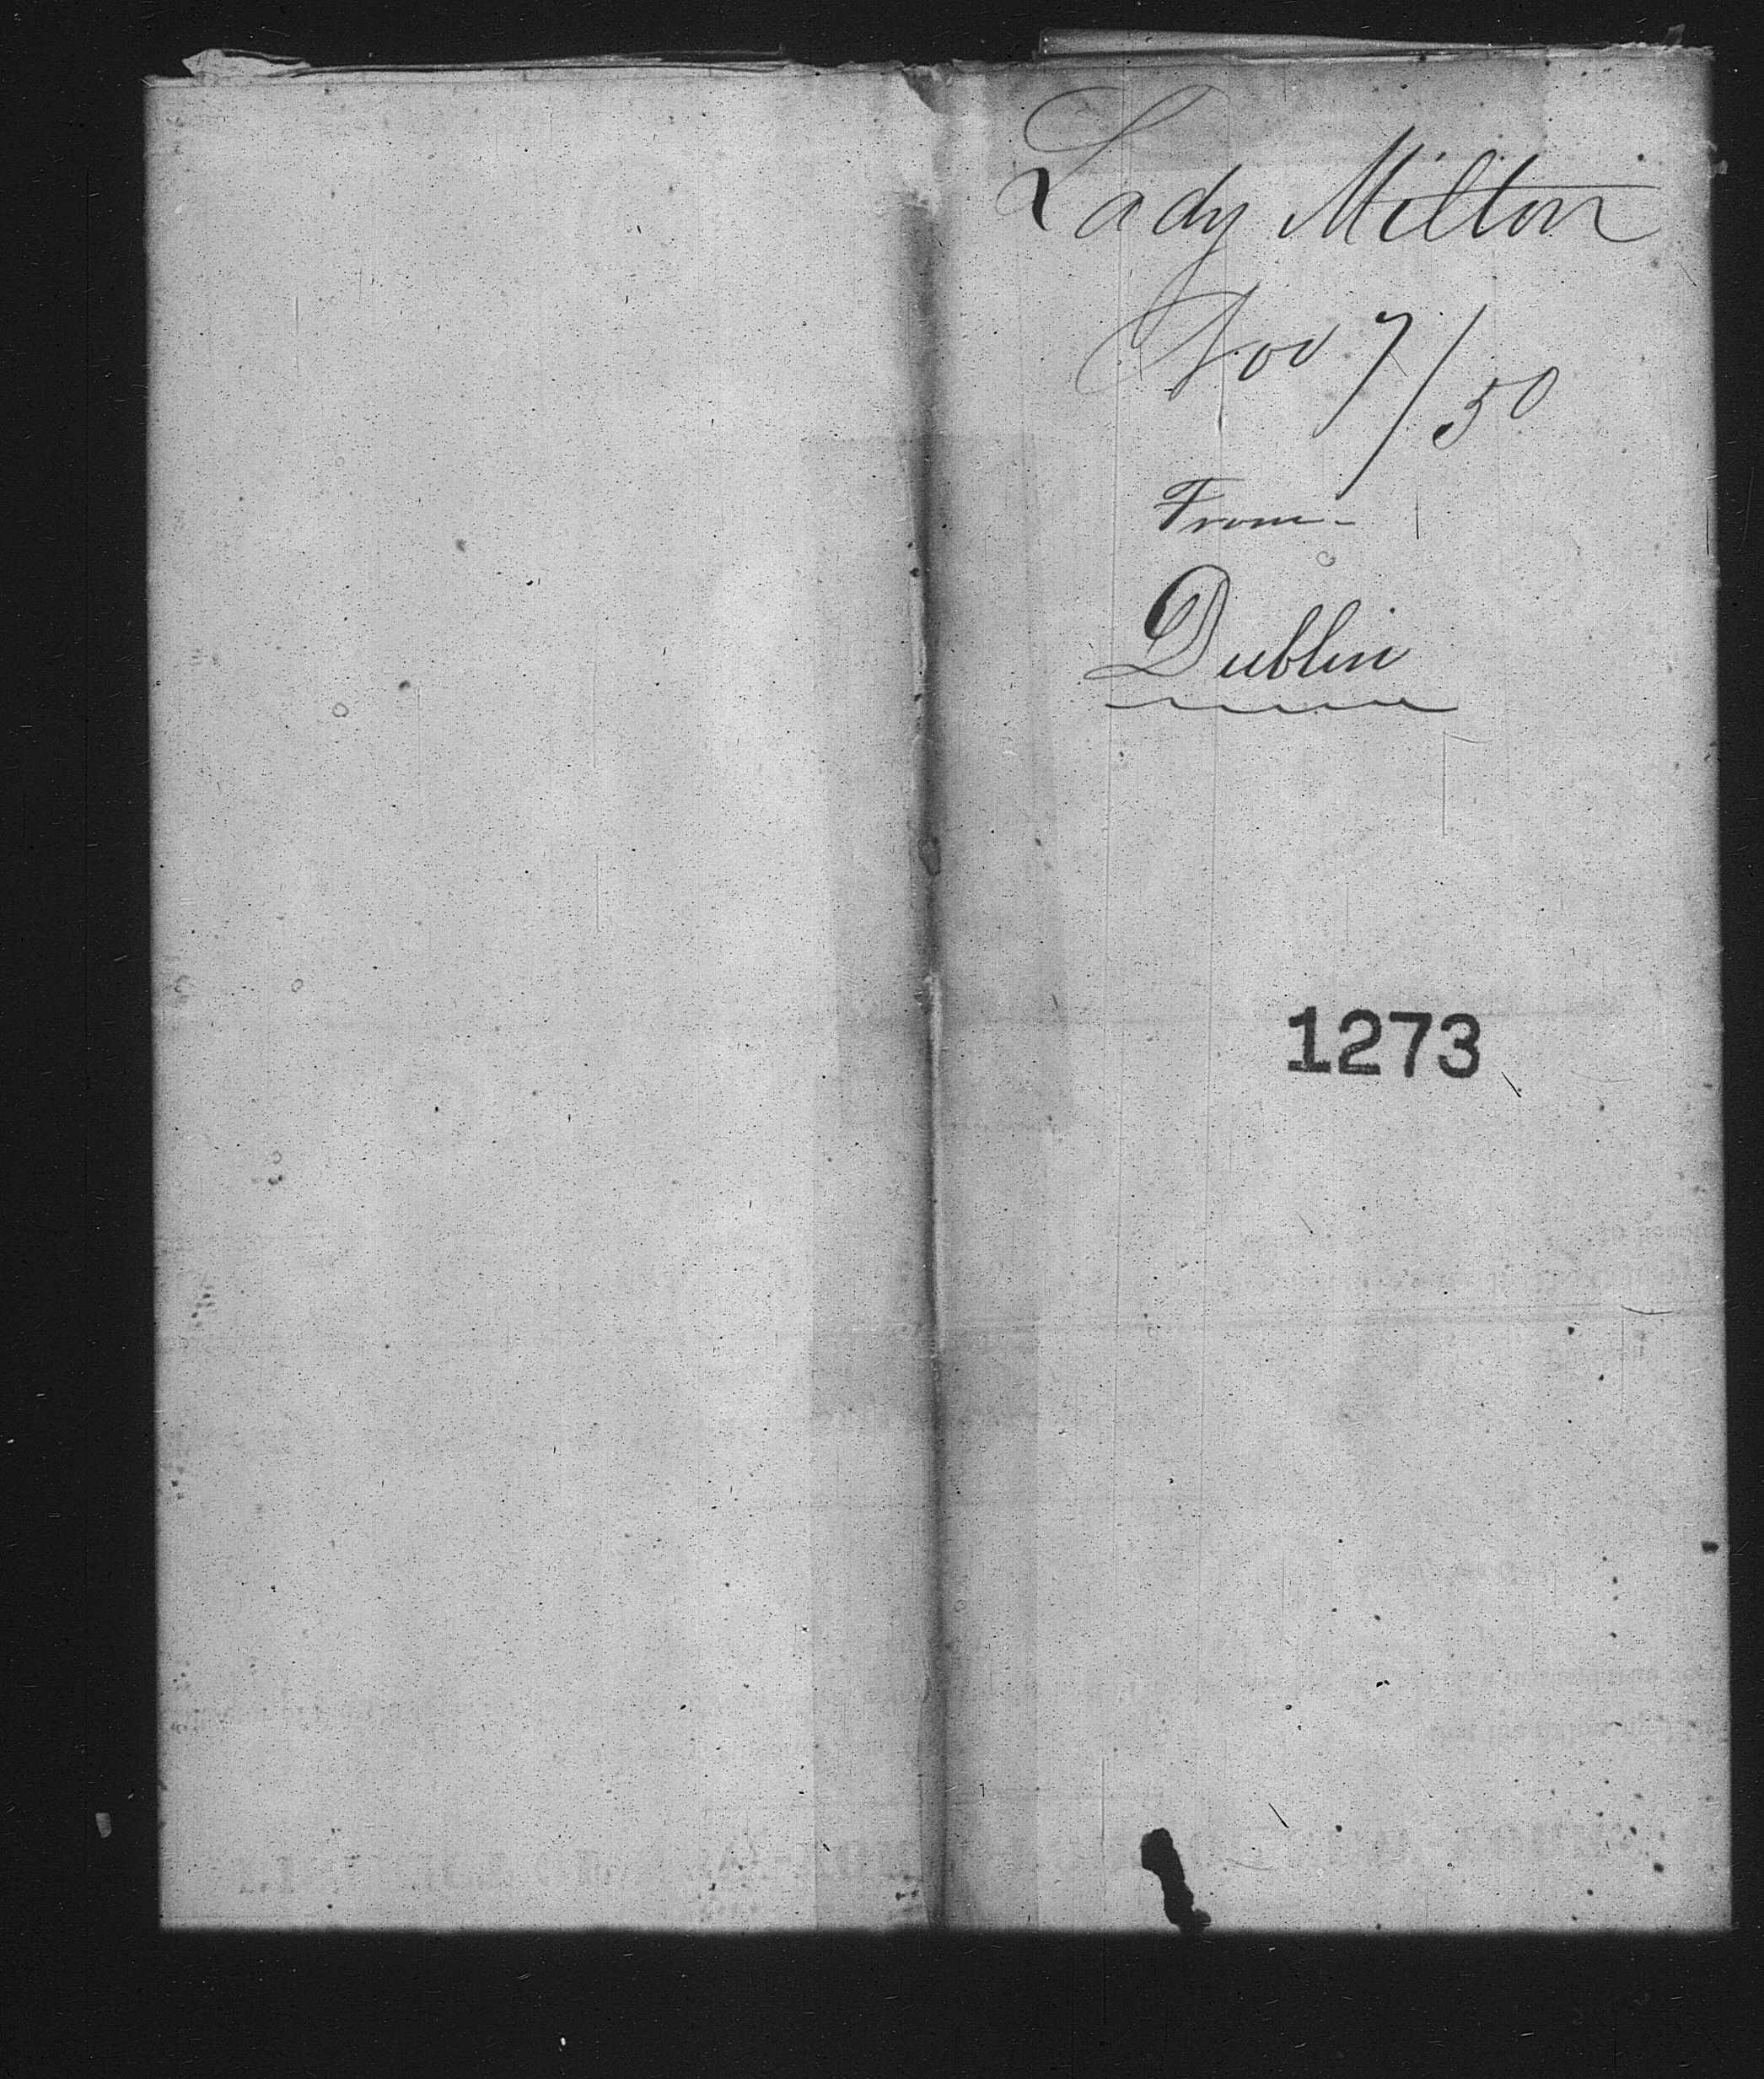 Lady Milton
Nov 7/50
From
Dublin
1273